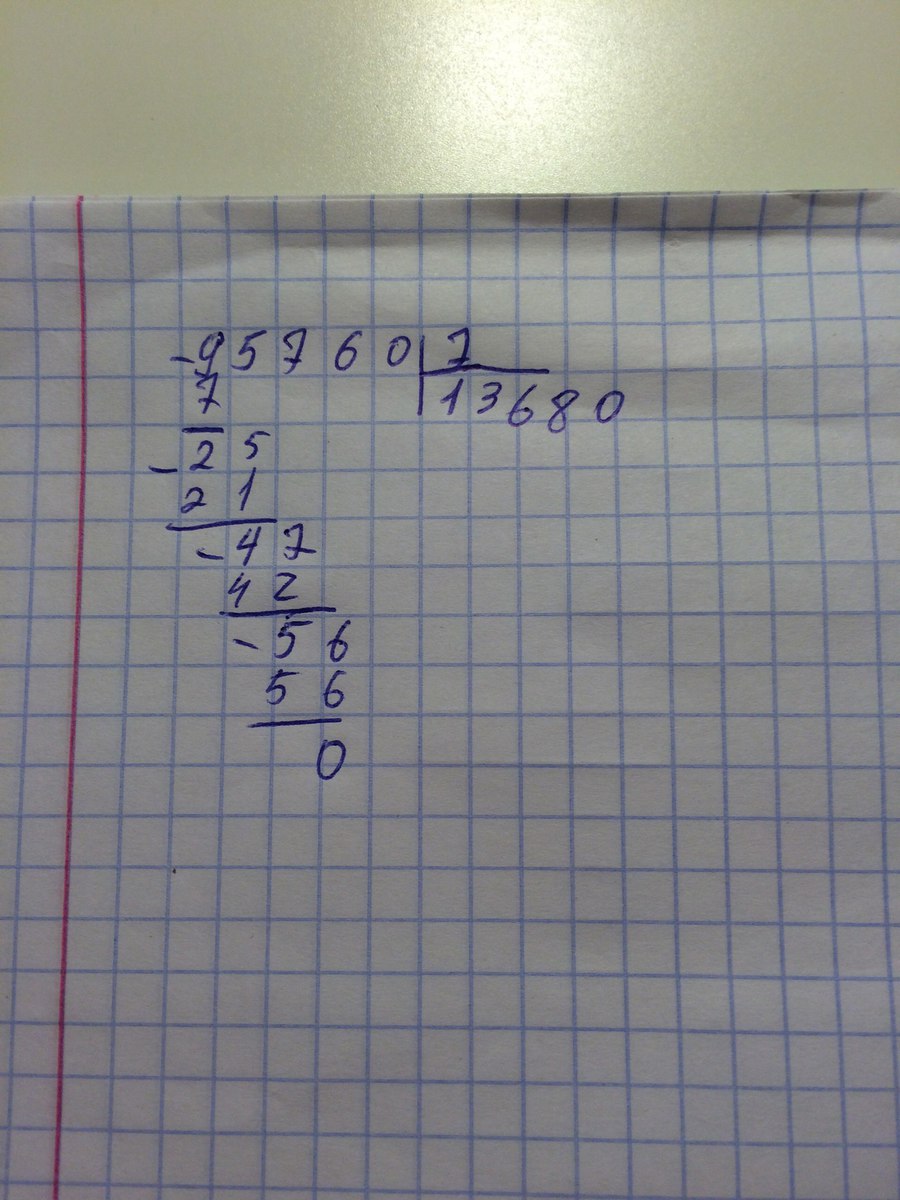 -95760|7
7 |13680
-25
21
-47
42
-56
56
0